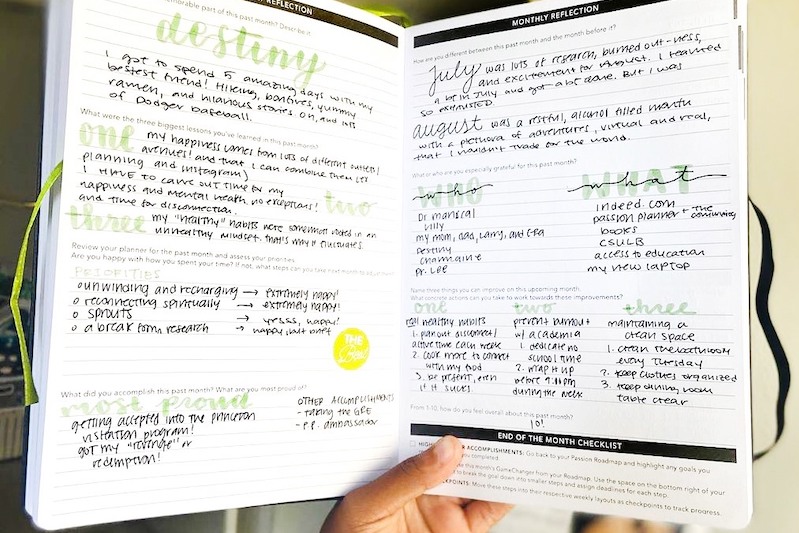 REFLECTION
memorable part of this past month? Describe it.
destiny
I got to spend 5 amazing days with my
bestest friend! Hiking, bonfires, yummy
ramen, and hilarious stories. Oh, and lots
of Dodger baseball.
What were the three biggest lessons you've learned in this past month?
one my happiness comes from lots of different outlets/
avenues! and that I can combine them (ex
planning and instagram)
I HAVE to carve out time for my
happiness and mental health. no exceptions! two
and time for disconnection.
three my "healthy" habits were sometimes rooted in an
unhealthy mindset. that's why it fluctuates.
Review your planner for the past month and assess your priorities.
Are you happy with how you spent your time? If not, what steps can you take next month to
PRIORITIES
unwinding and recharging → extremely happy!
reconnecting spiritually → extremely happy!
sprouts → yesss, happy!
a break from research → happy, but brief
THE
What did you accomplish this past month? What are you most proud of?
most proud
getting accepted into the princeton
visitation program!
got my "revenge" or
redemption!
OTHER ACCOMPLISHMENTS
- taking the GRE
- p.p. ambassador
MONTHLY REFLECTION
How are you different between this past month and the month before it?
July was lots of research, burned out-ness,
and excitement for August. I learned
a lot in July and got a lot done. But I was
so exhausted.
august was a restful, alcohol filled month
with a plethora of adventures, virtual and real,
that I wouldn't trade for the world.
What or who are you especially grateful for this month?
WHO
who
Dr mariscal
Lilly
my mom, dad, Larry, and
Destiny
Charmaine
Dr. Lee
WHAT
what
indeed.com
passion planner + the community
books
CSULB
access to education
my new laptop
Name three things you can improve on this upcoming month.
What concrete actions can you take to work towards these improvements?
one
real healthy habits
1. plan out disconnect/
active time each week
2. cook more to connect
with my food
3. be present, even
if it sucks.
two
prevent burnout
w/ academia
1. dedicate no
school time
2. wrap it up
before
during the week
three
maintaining a
clean space
1. clean the bathroom
every Tuesday
2. keep clothes organized
3. keep dining room
table clear
From 1-10, how do you feel overall about this past month?
10!
END OF THE MONTH CHECKLIST
ACCOMPLISHMENTS: Go back to your Passion Roadmap and highlight any goals you
completed.
this month's GameChanger from your Roadmap. Use the space on the bottom right of your
to break the goal down into smaller steps and assign deadlines for each step.
CHECKPOINTS: Move these steps into their respective weekly layouts as checkpoints to track progress.